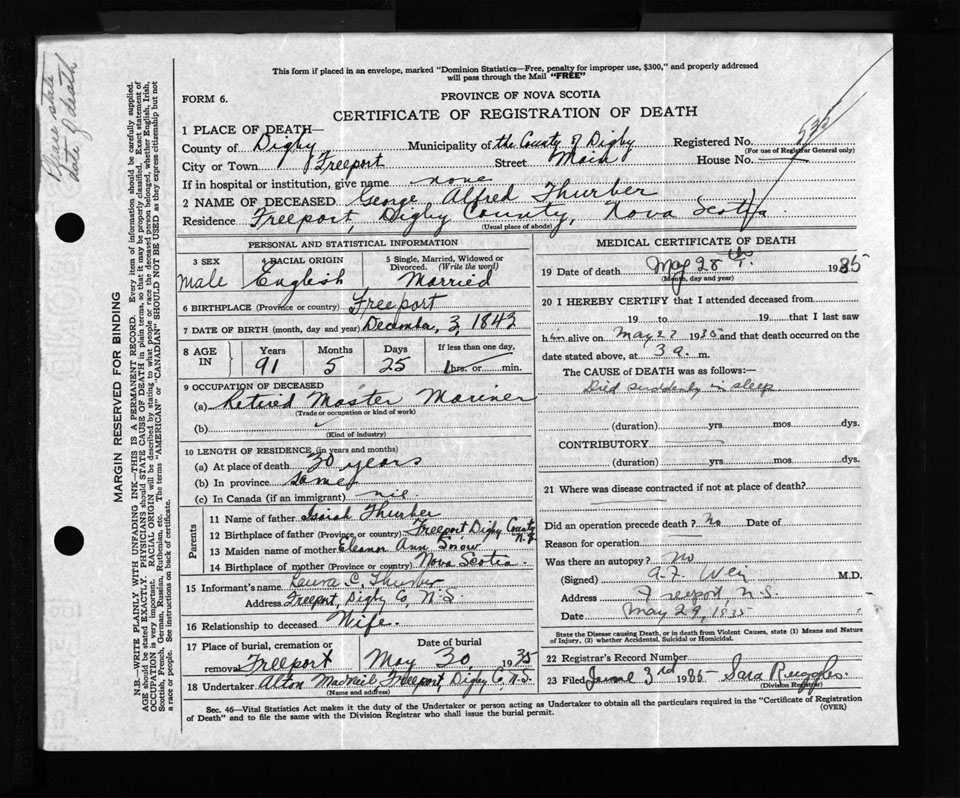 Please state
date of death
MARGIN RESERVED FOR BINDING
N.B.—WRITE PLAINLY WITH UNFADING INK—THIS IS A PERMANENT RECORD. Every item of information should be carefully supplied.
AGE should be stated EXACTLY. PHYSICIANS should STATE CAUSE OF DEATH in plain terms, so that it may be properly classified. Exact statement of
OCCUPATION is very important. RACIAL ORIGIN will be described by stating to what people or race the deceased person belonged, whether English, Irish,
Scottish, French, German, Russian, Ruthenian, etc. The terms "AMERICAN" or "CANADIAN" SHOULD NOT BE USED as they express citizenship but not
a race or people. See instructions on back of certificate.
This form if placed in an envelope, marked "Dominion Statistics—Free, penalty for improper use, $300," and properly addressed
will pass through the Mail "FREE"
FORM 6.
PROVINCE OF NOVA SCOTIA
CERTIFICATE OF REGISTRATION OF DEATH
1 PLACE OF DEATH—
County of Digby Municipality of the County of Digby Registered No.
(For use of Registrar General only)
City or Town Freeport Street Main House No.
If in hospital or institution, give name none
2 NAME OF DECEASED George Alfred Thurber
Residence Freeport, Digby County, Nova Scotia
(Usual place of abode)
PERSONAL AND STATISTICAL INFORMATION
3 SEX male
4 RACIAL ORIGIN English
5 Single, Married, Widowed or Divorced. (Write the word) Married
6 BIRTHPLACE (Province or country) Freeport
7 DATE OF BIRTH (month, day and year) December, 3, 1843
8 AGE IN Years 91 Months 5 Days 25 If less than one day, hrs. or min.
9 OCCUPATION OF DECEASED
(a) Retired Master Mariner
(Trade or occupation or kind of work)
(b)
(Kind of industry)
10 LENGTH OF RESIDENCE (in years and months)
(a) At place of death 30 years
(b) In province same
(c) In Canada (if an immigrant) nil
Parents
11 Name of father Isaiah Thurber
12 Birthplace of father (Province or country) Freeport Digby County N.S.
13 Maiden name of mother Eleanor Ann Snow
14 Birthplace of mother (Province or country) Nova Scotia
15 Informant's name Laura C. Thurber
Address Freeport, Digby Co, N.S.
16 Relationship to deceased Wife.
17 Place of burial, cremation or removal Freeport Date of burial May 30, 1935
18 Undertaker Alton MacNeil Freeport, Digby Co, N.S.
(Name and address)
MEDICAL CERTIFICATE OF DEATH
19 Date of death May 28th. 1935
(Month, day and year)
20 I HEREBY CERTIFY that I attended deceased from
19 to 19 that I last saw
him alive on May 27 1935 and that death occurred on the
date stated above, at 3 a. m.
The CAUSE of DEATH was as follows:—
Died suddenly in sleep
(duration) yrs. mos. dys.
CONTRIBUTORY
(duration) yrs. mos. dys.
21 Where was disease contracted if not at place of death?
Did an operation precede death? No Date of
Reason for operation
Was there an autopsy? no
(Signed) A.F. Weir M.D.
Address Freeport, N.S.
Date May 29, 1935
State the Disease causing Death, or in death from Violent Causes, state (1) Means and Nature
of Injury, (2) whether Accidental, Suicidal or Homicidal.
22 Registrar's Record Number
23 Filed June 3rd 1935 Sara Ruggles
(Division Registrar)
Sec. 46—Vital Statistics Act makes it the duty of the Undertaker or person acting as Undertaker to obtain all the particulars required in the "Certificate of Registration
of Death" and to file the same with the Division Registrar who shall issue the burial permit.
(OVER)